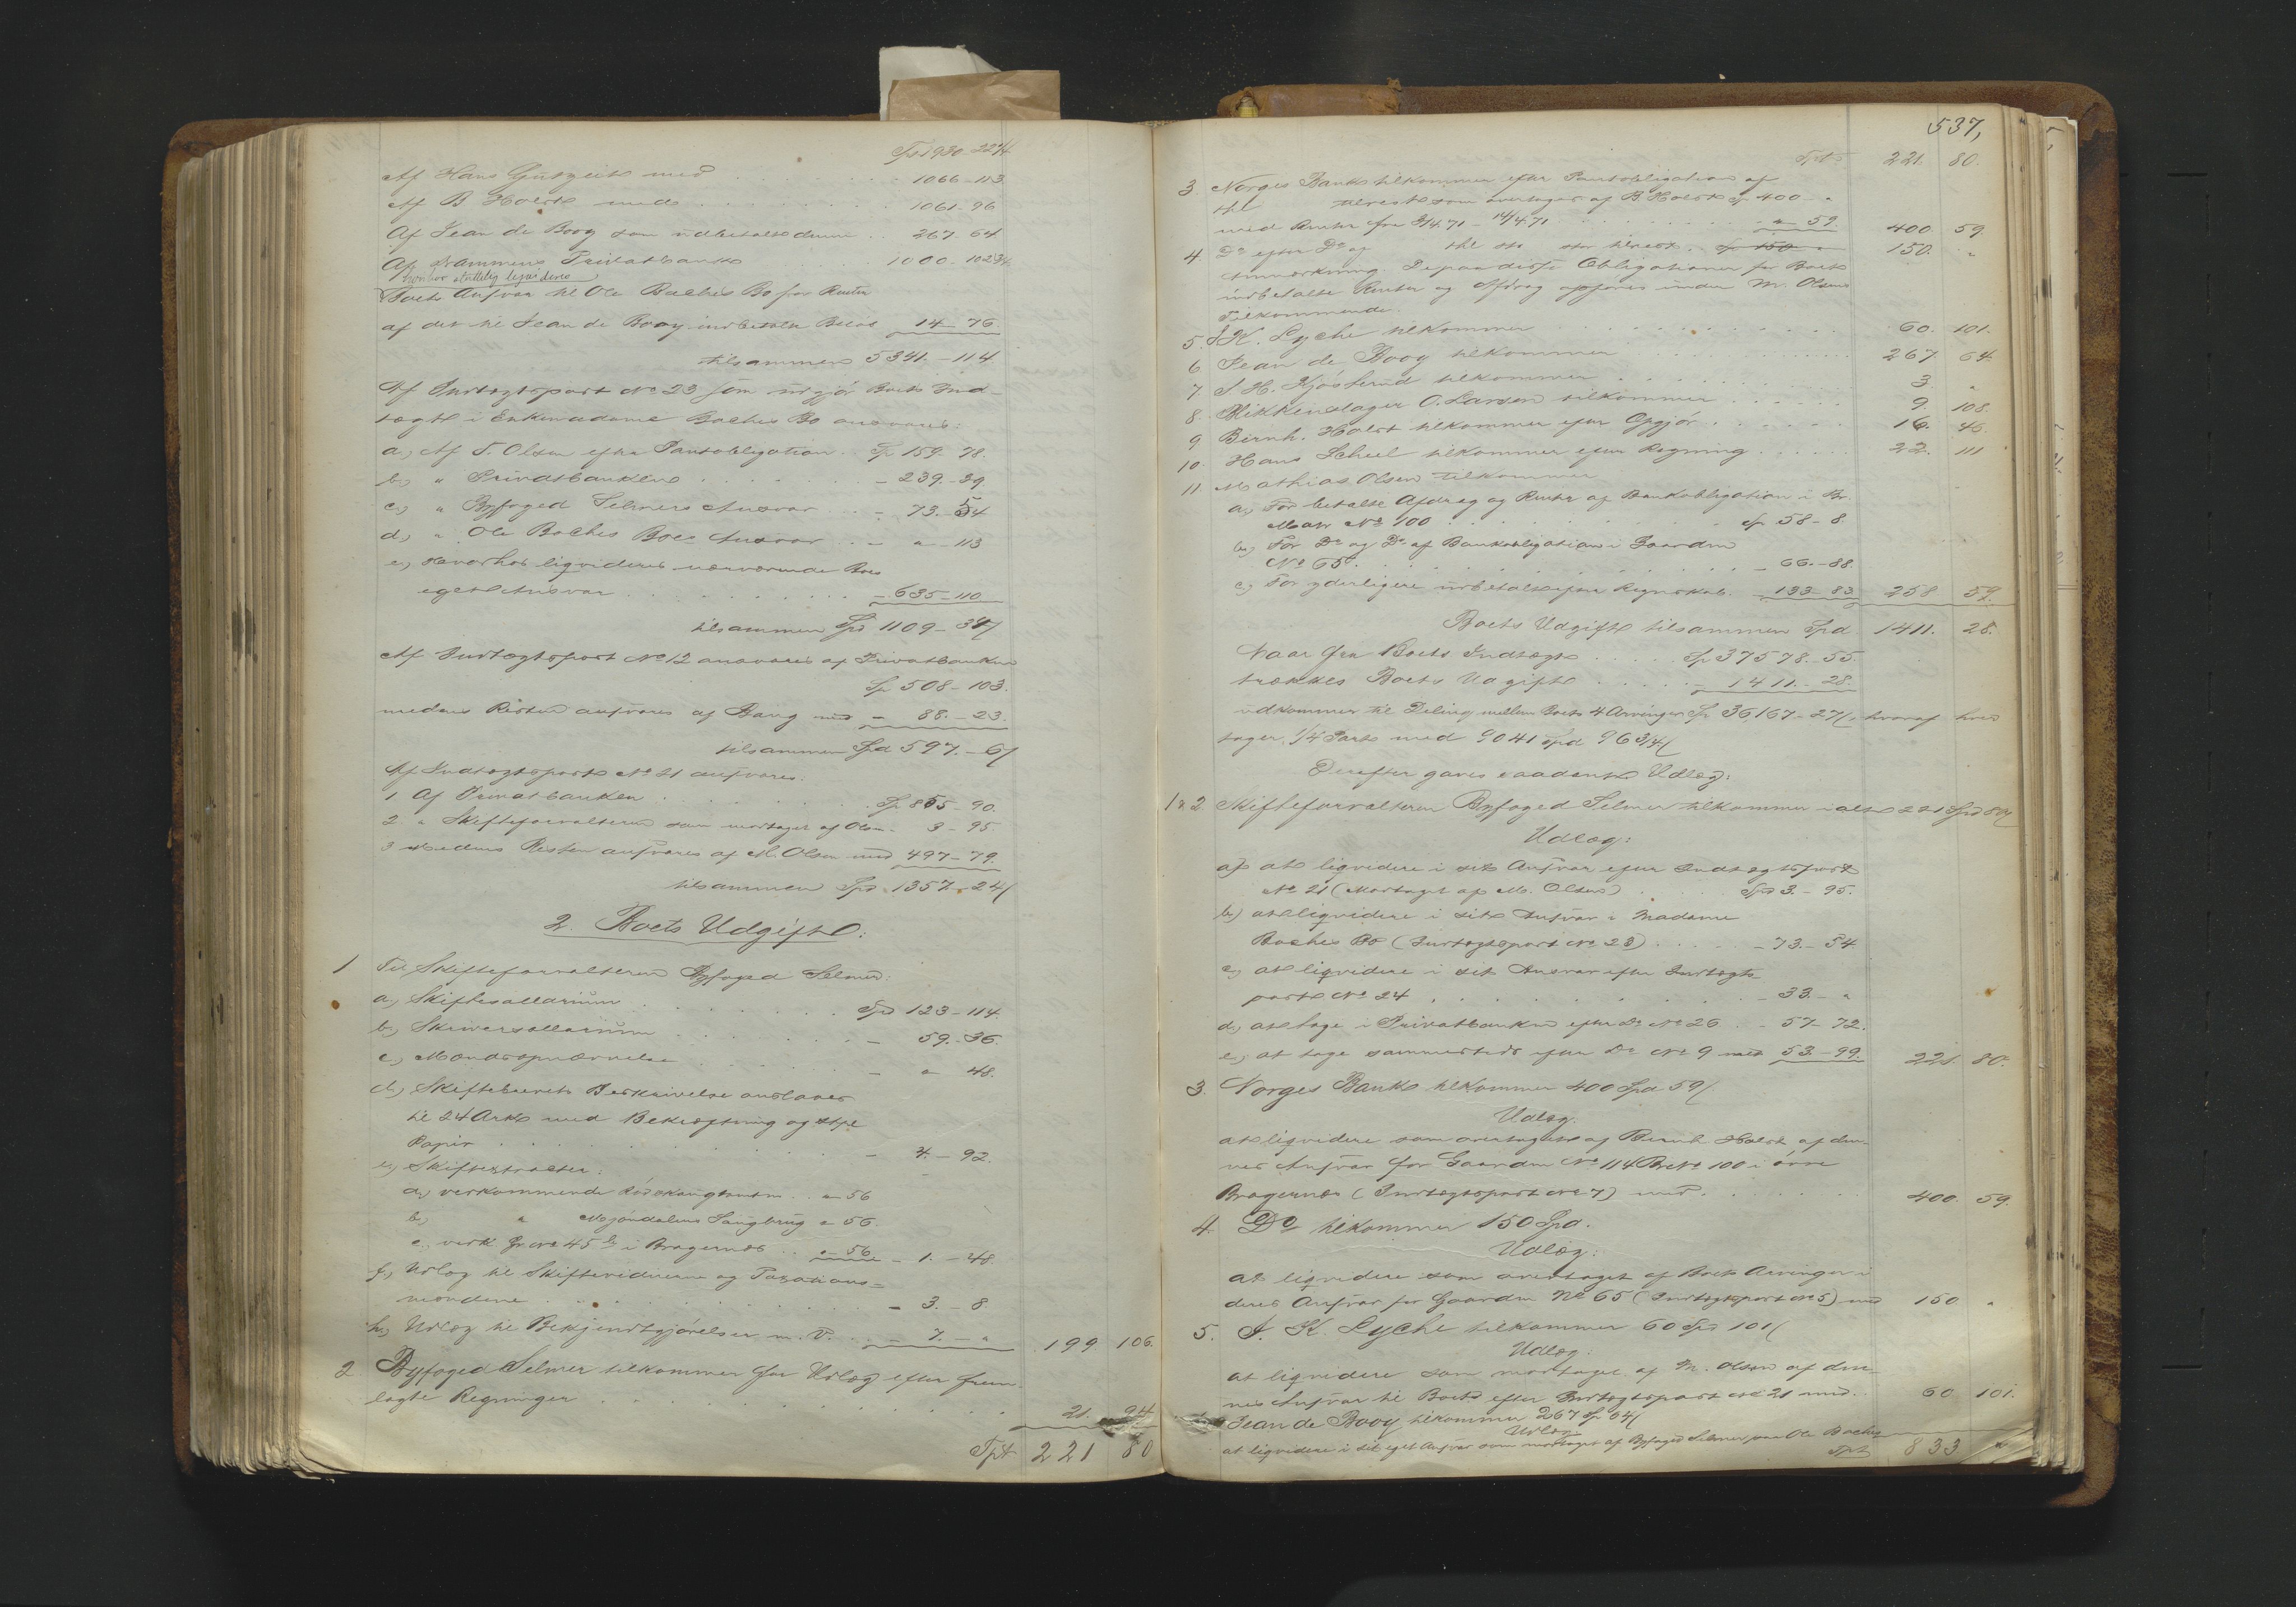 Sp 1930 - 22 1/4
Af Hans Gutzeit med 1066 - 113
Af B Holst med 1061 - 96
Af Jean de Booy som udbetalt denne 267 - 64
Af Drammens Privatbank 1000 - 102 3/4
hvorhos liqvideres
Boets Ansvar til Ole Baches Bo for Renter
af det til Jean de Booy indbetalte Beløb 14 - 76
tilsammen 5341. - 114
Af Indtægtspost No 23 som udgjør Boets Ind-
tægt i Enkemadame Baches Bo ansvares:
a, Af T. Olsen efter Pantobligation Sp 159. 78.
b, " Privatbanken - 239. - 39.
c, " Byfoged Selmers Ansvar - 73. - 54
d, " Ole Baches Boes Ansvar - " - 113
e, Hvorhos liqvideres nærværende Boes
eget Ansvar - 635 - 110
tilsammen Spd 1109 - 34/
Af Indtægtspost No 12 ansvares af Privatbanken
Sp 508 - 103.
medens Resten ansvares af Bang med - 88. - 23.
tilsammen Spd 597. - 6/
Af Indtægtspost No 21 ansvares:
1 Af Privatbanken Sp 855 - 90.
2. " Skifteforvalteren som modtaget af Olsen - 3 - 95.
3 Medens Resten ansvares af M. Olsen med 497 - 79.
tilsammen Spd 1357. - 24/
2. Boets Udgift:
1 Til Skifteforvalteren Byfoged Selmer:
a, Skiftesallarium Spd 123 - 114.
b, Skriversallarium - 59. - 36.
c, Mændsopnævnelse - " 48.
d, Skiftebrevets Beskrivelse anslaaes
til 24 Ark med Bekræftning og stpl
Papir - 4. - 92.
e, Skifteextracter:
a, vedkommende " 56
b, " Mjøndalens Saugbrug " 56.
c. vedk. Gr No 45 b i Bragernes " - 56 - 1. - 48.
f, Udlæg til Skiftevidnerne og Taxations-
mændene - 3. - 8.
h, Udlæg til Bekjendtgjørelser m. V. - 7. - " 199 106.
2 Byfoged Selmer tilkommer for Udlæg efter frem-
lagte Regninger 21. 94
Tpt 221 80
537,
Tpt 221. 80.
3. Norges Bank tilkommer efter Pantobligation af
til Rest som overtages af B. Holst Sp 400 - "
med Renter fra 3/4 71 - 14/4 71 " - 59. 400. 59
4. Do efter Do af til Rest Sp 150 " 150. "
Anmærkning. De paa disse Obligationer for Boet
indbetalte Renter og Afdrag opføres under M. Olsens
Tilkommende.
5. J K. Lyche tilkommer 60. 101.
6. Jean de Booy tilkommer 267. 64.
7. J H. Kjøsterud tilkommer 3. "
8. Blikkenslager O. Larsen tilkommer 9. 108.
9 Bernh. Holst tilkommer efter Opgjør 16. 46.
10. Hans Scheel tilkommer efter Regning 22. 111
11. Mathias Olsen tilkommer
a, For betalte Afdrag og Renter af Bankobligation i Br.
Matr No 100 Sp 58 - 8.
b, For Do og Do af Bankobligation i Gaarden
No 65 - 66. - 88.
c, For yderligere udbetalt efter Regnskab - 133 - 83 258 59.
Boets Udgift tilsammen Spd 1411. 28.
Naar fra Boets Indtægt Sp 37578. - 55.
trækkes Boets Udgift - 1411. - 28.
udkommer til Deling mellem Boets 4 Arvinger Sp 36,167 - 27/, hvoraf hver
tager 1/4 Part med 9041 Spd 96 3/4/
Derefter gaves saadant Udlæg:
1 & 2 Skifteforvalteren Byfoged Selmer tilkommer ialt 221 Spd 80/
Udlæg:
a, at liqvidere i sit Ansvar efter Indtægtspost
No 21 (Modtaget af M. Olsen) Spd 3. - 95.
b, at liqvidere i sit Ansvar i Madame
Baches Bo (Indtægtspost No 23) - 73. - 54.
c, at liqvidere i sit Ansvar efter Indtægts-
post No 24 - 33. - "
d, at tage i Privatbanken efter Do No 26 - 57 - 72.
e, at tage sammesteds efter Do No 9 med 53. - 99. 221. 80.
3. Norges Bank tilkommer 400 Spd 59/.
Udlæg.
at liqvidere som overtaget af Bernh Holst af den-
nes Ansvar for Gaarden No 114 B No 100 i øvre
Bragernes (Indtægtspost No 7) med 400. 59.
4. Do tilkommer 150 Spd.
Udlæg:
at liqvidere som overtaget af Boets Arvinger i
deres Ansvar for Gaarden No 65 (Indtægtspost No 5) med 150 "
5. J. K. Lyche tilkommer 60 Spd 101/
Udlæg:
at liqvidere som modtaget af M. Olsen af den-
nes Ansvar til Boet efter Indtægtspost No 21 med 60 101.
Jean de Booy tilkommer 267 Sp 64/
Udlæg:
at liqvidere i sit eget Ansvar som modtaget af Byfoged Selmer paa Ole Baches
Tpt 833 "